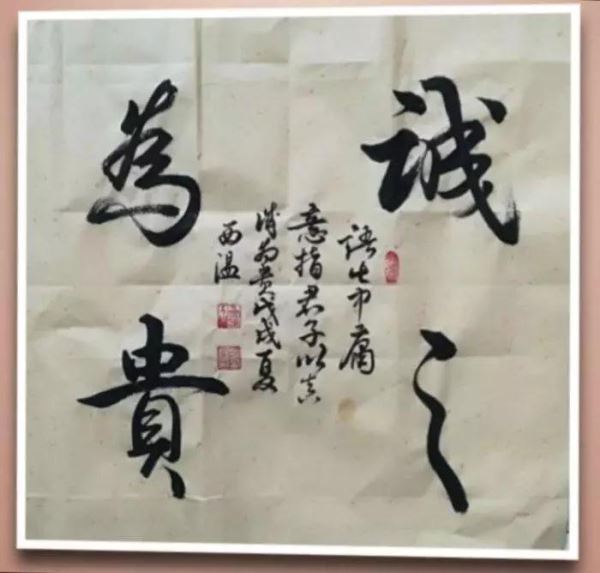 誠之
語出中庸
意指君子以真
誠為貴戊戌夏
西温
為貴